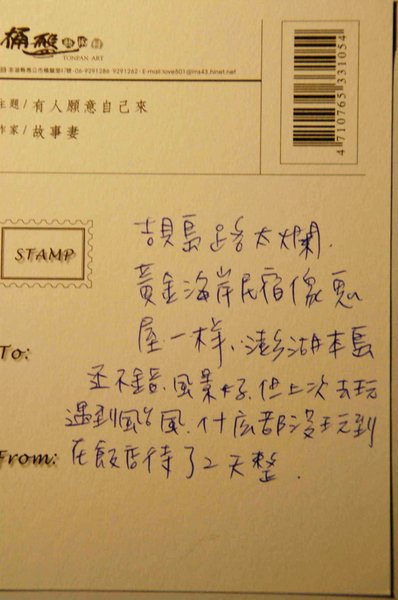 桶盤
TONPAN ART
06-9291286 9291262 · E-mail:love501@ms43.hinet.net
主題/有人願意自己來
作家/故事妻
4710765331054
STAMP
吉貝島路太爛.
黃金海岸民宿像鬼
屋一样、澎湖本島
To:
还不錯.風景好.但上次去玩
遇到風台風.什広都沒玩到
From:
在飯店待了2天整.